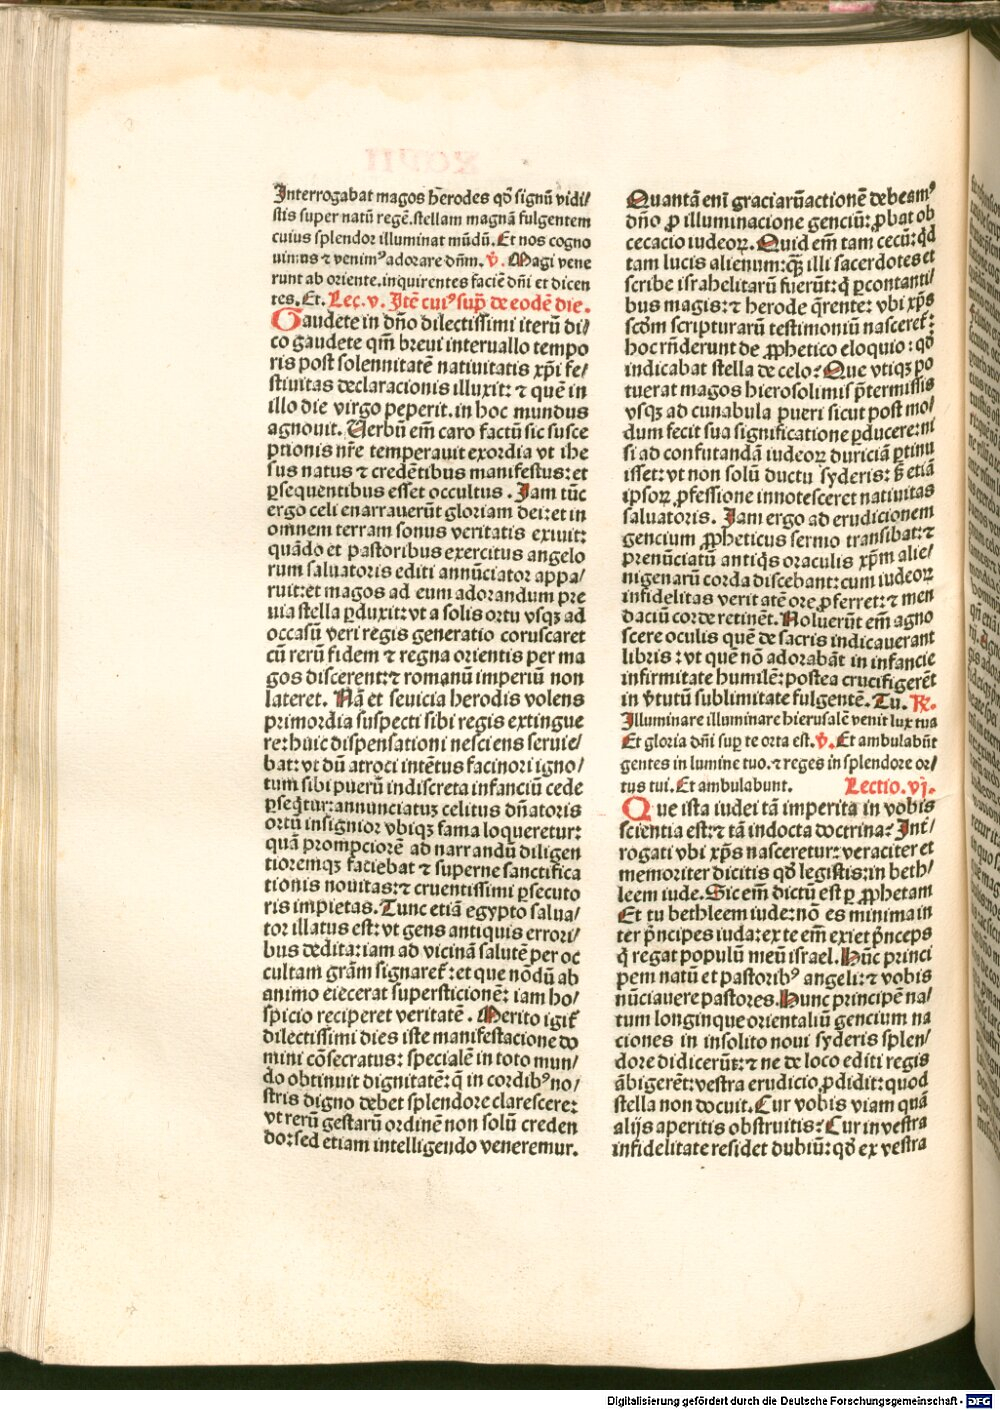 Interrogabat magos herodes qd̄ signū vidi/
stis super natū regē.stellam magnā fulgentem
cuius splendor illuminat mūdū.Et nos cogno
uimus ⁊ venimꝰ adorare dn̄m.℣.Magi vene
runt ab oriente.inquirentes faciē dn̄i et dicen
tes.Et. Lec.v. Itē cuiꝰ sup̄ de eodē die.
Gaudete in dn̄o dilectissimi iterū di/
co gaudete qm̄ breui interuallo tempo
ris post solennitatē natiuitatis xp̄i fe/
stiuitas declaracionis illuxit: ⁊ quē in
illo die virgo peperit.in hoc mundus
agnouit. Verbū em̄ caro factū sic susce
ptionis nr̄e temperauit exordia vt ihe
sus natus ⁊ credētibus manifestus: et
ꝑsequentibus esset occultus . Iam tūc
ergo celi enarrauerūt gloriam dei: et in
omnem terram sonus veritatis exiuit:
quādo et pastoribus exercitus angelo
rum saluatoris editi annūciator appa/
ruit: et magos ad eum adorandum pre
uia stella ꝑduxit: vt a solis ortu vsqꝫ ad
occasū veri regis generatio coruscaret
cū rerū fidem ⁊ regna orientis per ma
gos discerent: ⁊ romanū imperiū non
lateret. Nā et seuicia herodis volens
primordia suspecti sibi regis extingue
re: huic dispensationi nesciens seruie/
bat: vt dū atroci intētus facinori igno/
tum sibi puerū indiscreta infanciū cede
ꝑseq̄tur: annunciatuꝫ celitus dn̄atoris
ortū insignior vbiqꝫ fama loqueretur:
quā prompciorē ad narrandū diligen
tioremqꝫ faciebat ⁊ superne sanctifica
tionis nouitas: ⁊ cruentissimi ꝑsecuto
ris impietas. Tunc etiā egypto salua/
tor illatus est: vt gens antiquis errori/
bus dedita: iam ad vicinā salutē per oc
cultam grām signaret᷑: et que nōdū ab
animo eiecerat supersticionē: iam ho/
spicio reciperet veritatē . Merito igit᷑
dilectissimi dies iste manifestacione do
mini cōsecratus: specialē in toto mun/
do obtinuit dignitatē: q̄ in cordibꝰ no/
stris digno debet splendore clarescere:
vt rerū gestarū ordinē non solū creden
do: sed etiam intelligendo veneremur.
Quantā eni graciarū actionē debeamꝰ
dn̄o ꝓ illuminacione genciū: ꝓbat ob
cecacio iudeoꝝ. Quid em̄ tam cecū: qd̄
tam lucis alienum: qꝫ illi sacerdotes et
scribe israhelitarū fuerūt: q̄ ꝑcontanti/
bus magis: ⁊ herode q̄rente: vbi xp̄s
scd̄m scripturarū testimoniū nasceret᷑:
hoc rn̄derunt de ꝓphetico eloquio : qd̄
indicabat stella de celo? Que vtiqꝫ po
tuerat magos hierosolimis p̄termissis
vsqꝫ ad cunabula pueri sicut post mo/
dum fecit sua significatione ꝑducere: ni
si ad confutandā iudeoꝝ duriciā ꝑtinu
isset: vt non solū ductu syderis: sꝫ etiā
ipsoꝝ ꝓfessione innotesceret natiuitas
saluatoris. Iam ergo ad erudicionem
gencium ꝓpheticus sermo transibat: ⁊
prenūciatū antiqͥs oraculis xp̄m alie/
nigenarū corda discebant: cum iudeoꝝ
infidelitas veritatē ore ꝓferret: ⁊ men
daciū corde retinēt. Noluerūt em̄ agno
scere oculis quē de sacris indicauerant
libris : vt quē nō adorabāt in infancie
infirmitate humilē: postea crucifigerēt
in v̄tutū sublimitate fulgentē. Tu. ℟.
Illuminare illuminare hierusalē venit lux tua
Et gloria dn̄i sup te orta est.℣.Et ambulabūt
gentes in lumine tuo.⁊ reges in splendore or/
tus tui.Et ambulabunt. Lectio.vj.
Que ista iudei tā imperita in vobis
scientia est: ⁊ tā indocta doctrina? Int̄/
rogati vbi xp̄s nasceretur: veraciter et
memoriter dicitis qd̄ legistis: in beth/
leem iude. Sic em̄ dictū est ꝑ ꝓphetam
Et tu bethleem iude: nō es minima in
ter p̄ncipes iuda: ex te em̄ exiet p̄nceps
q̄ regat populū meū israel. Hūc princi
pem natū et pastoribꝰ angeli: ⁊ vobis
nūciauere pastores. Hunc principē na/
tum longinque orientaliū gencium na
ciones in insolito noui syderis splen/
dore didicerūt: ⁊ ne de loco editi regis
ābigerēt: vestra erudicio ꝓdidit: quod
stella non docuit. Cur vobis viam quā
alijs aperitis obstruitis? Cur in vestra
infidelitate residet dubiū: qd̄ ex vestra
Digitalisierung gefördert durch die Deutsche Forschungsgemeinschaft - DFG